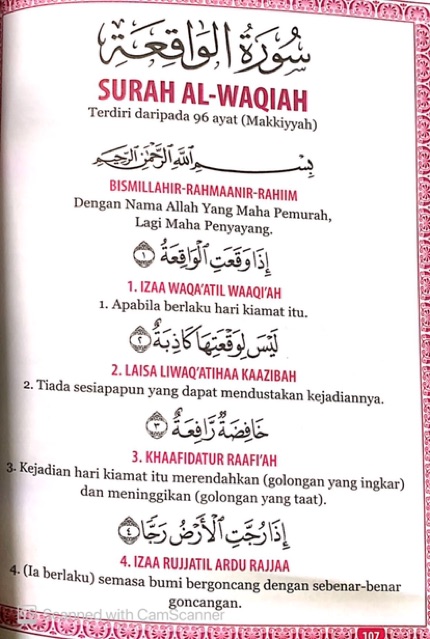 سُورَةُ الوَاقِعَة
SURAH AL-WAQIAH
Terdiri daripada 96 ayat (Makkiyyah)
بِسْمِ اللَّهِ الرَّحْمَٰنِ الرَّحِيمِ
BISMILLAHIR-RAHMAANIR-RAHIIM
Dengan Nama Allah Yang Maha Pemurah,
Lagi Maha Penyayang.
إِذَا وَقَعَتِ الْوَاقِعَةُ ١
1. IZAA WAQA'ATIL WAAQI'AH
1. Apabila berlaku hari kiamat itu.
لَيْسَ لِوَقْعَتِهَا كَاذِبَةٌ ٢
2. LAISA LIWAQ'ATIHAA KAAZIBAH
2. Tiada sesiapapun yang dapat mendustakan kejadiannya.
خَافِضَةٌ رَّافِعَةٌ ٣
3. KHAAFIDATUR RAAFI'AH
3. Kejadian hari kiamat itu merendahkan (golongan yang ingkar)
dan meninggikan (golongan yang taat).
إِذَا رُجَّتِ الْأَرْضُ رَجًّا ٤
4. IZAA RUJJATIL ARDU RAJJAA
4. (Ia berlaku) semasa bumi bergoncang dengan sebenar-benar
goncangan.
Scanned with CamScanner
107